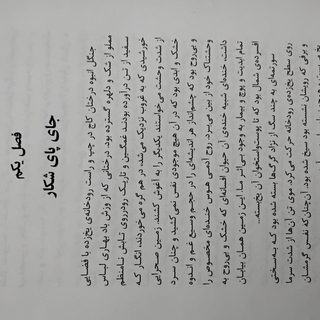 فصل یکم
جای پای شکار
جنگل انبوه درختان کاج در چپ و راست رودخانه‌ی یخ‌زده با فضایی
مملو از شک و دلهره گسترده بود. درختانی که از وزش باد بهاری لباس
سفید از تن درآورده بودند غمگین و تاریک رودرروی تابش نامنظم
خورشیدی که به غروب نزدیک می‌شد، در هم گره می‌خوردند، انگار که
از شدت وحشت می‌خواستند یکدیگر را به آغوش کشند. زمین صحرایی
خشک و ابدی بود که در آن هیچ موجودی نفس نمی‌کشید و چنان سرد
و بی‌روح بود که چشم‌انداز هر اندیشه‌ای را در حجم وسیع غم و اندوه
وحشتناک خود از بین می‌برد. روح آدمی هوس خنده‌ای مخصوص را
داشت، خنده‌ای شبیه خنده‌ی آن حیوان افسانه‌ای که خشک و بی‌روح به
تمام ابدیت و پوچ و بیمار به وجود بی‌اثر ما. این زمین همان بیابان
افسرده‌ی شمال بود که تا پوست‌واستخوان آن یخ‌بسته...
سورتمه‌ای به چند سگ از نژاد گرگ‌ها بسته شده بود که به‌سختی
روی سطح یخ‌زده‌ی رودخانه حرکت می‌کرد. موی تن آن‌ها از شدت سرما
و برفی که رویشان نشسته بود سیخ شده بود. آن‌چنان‌که نفس گرمشان